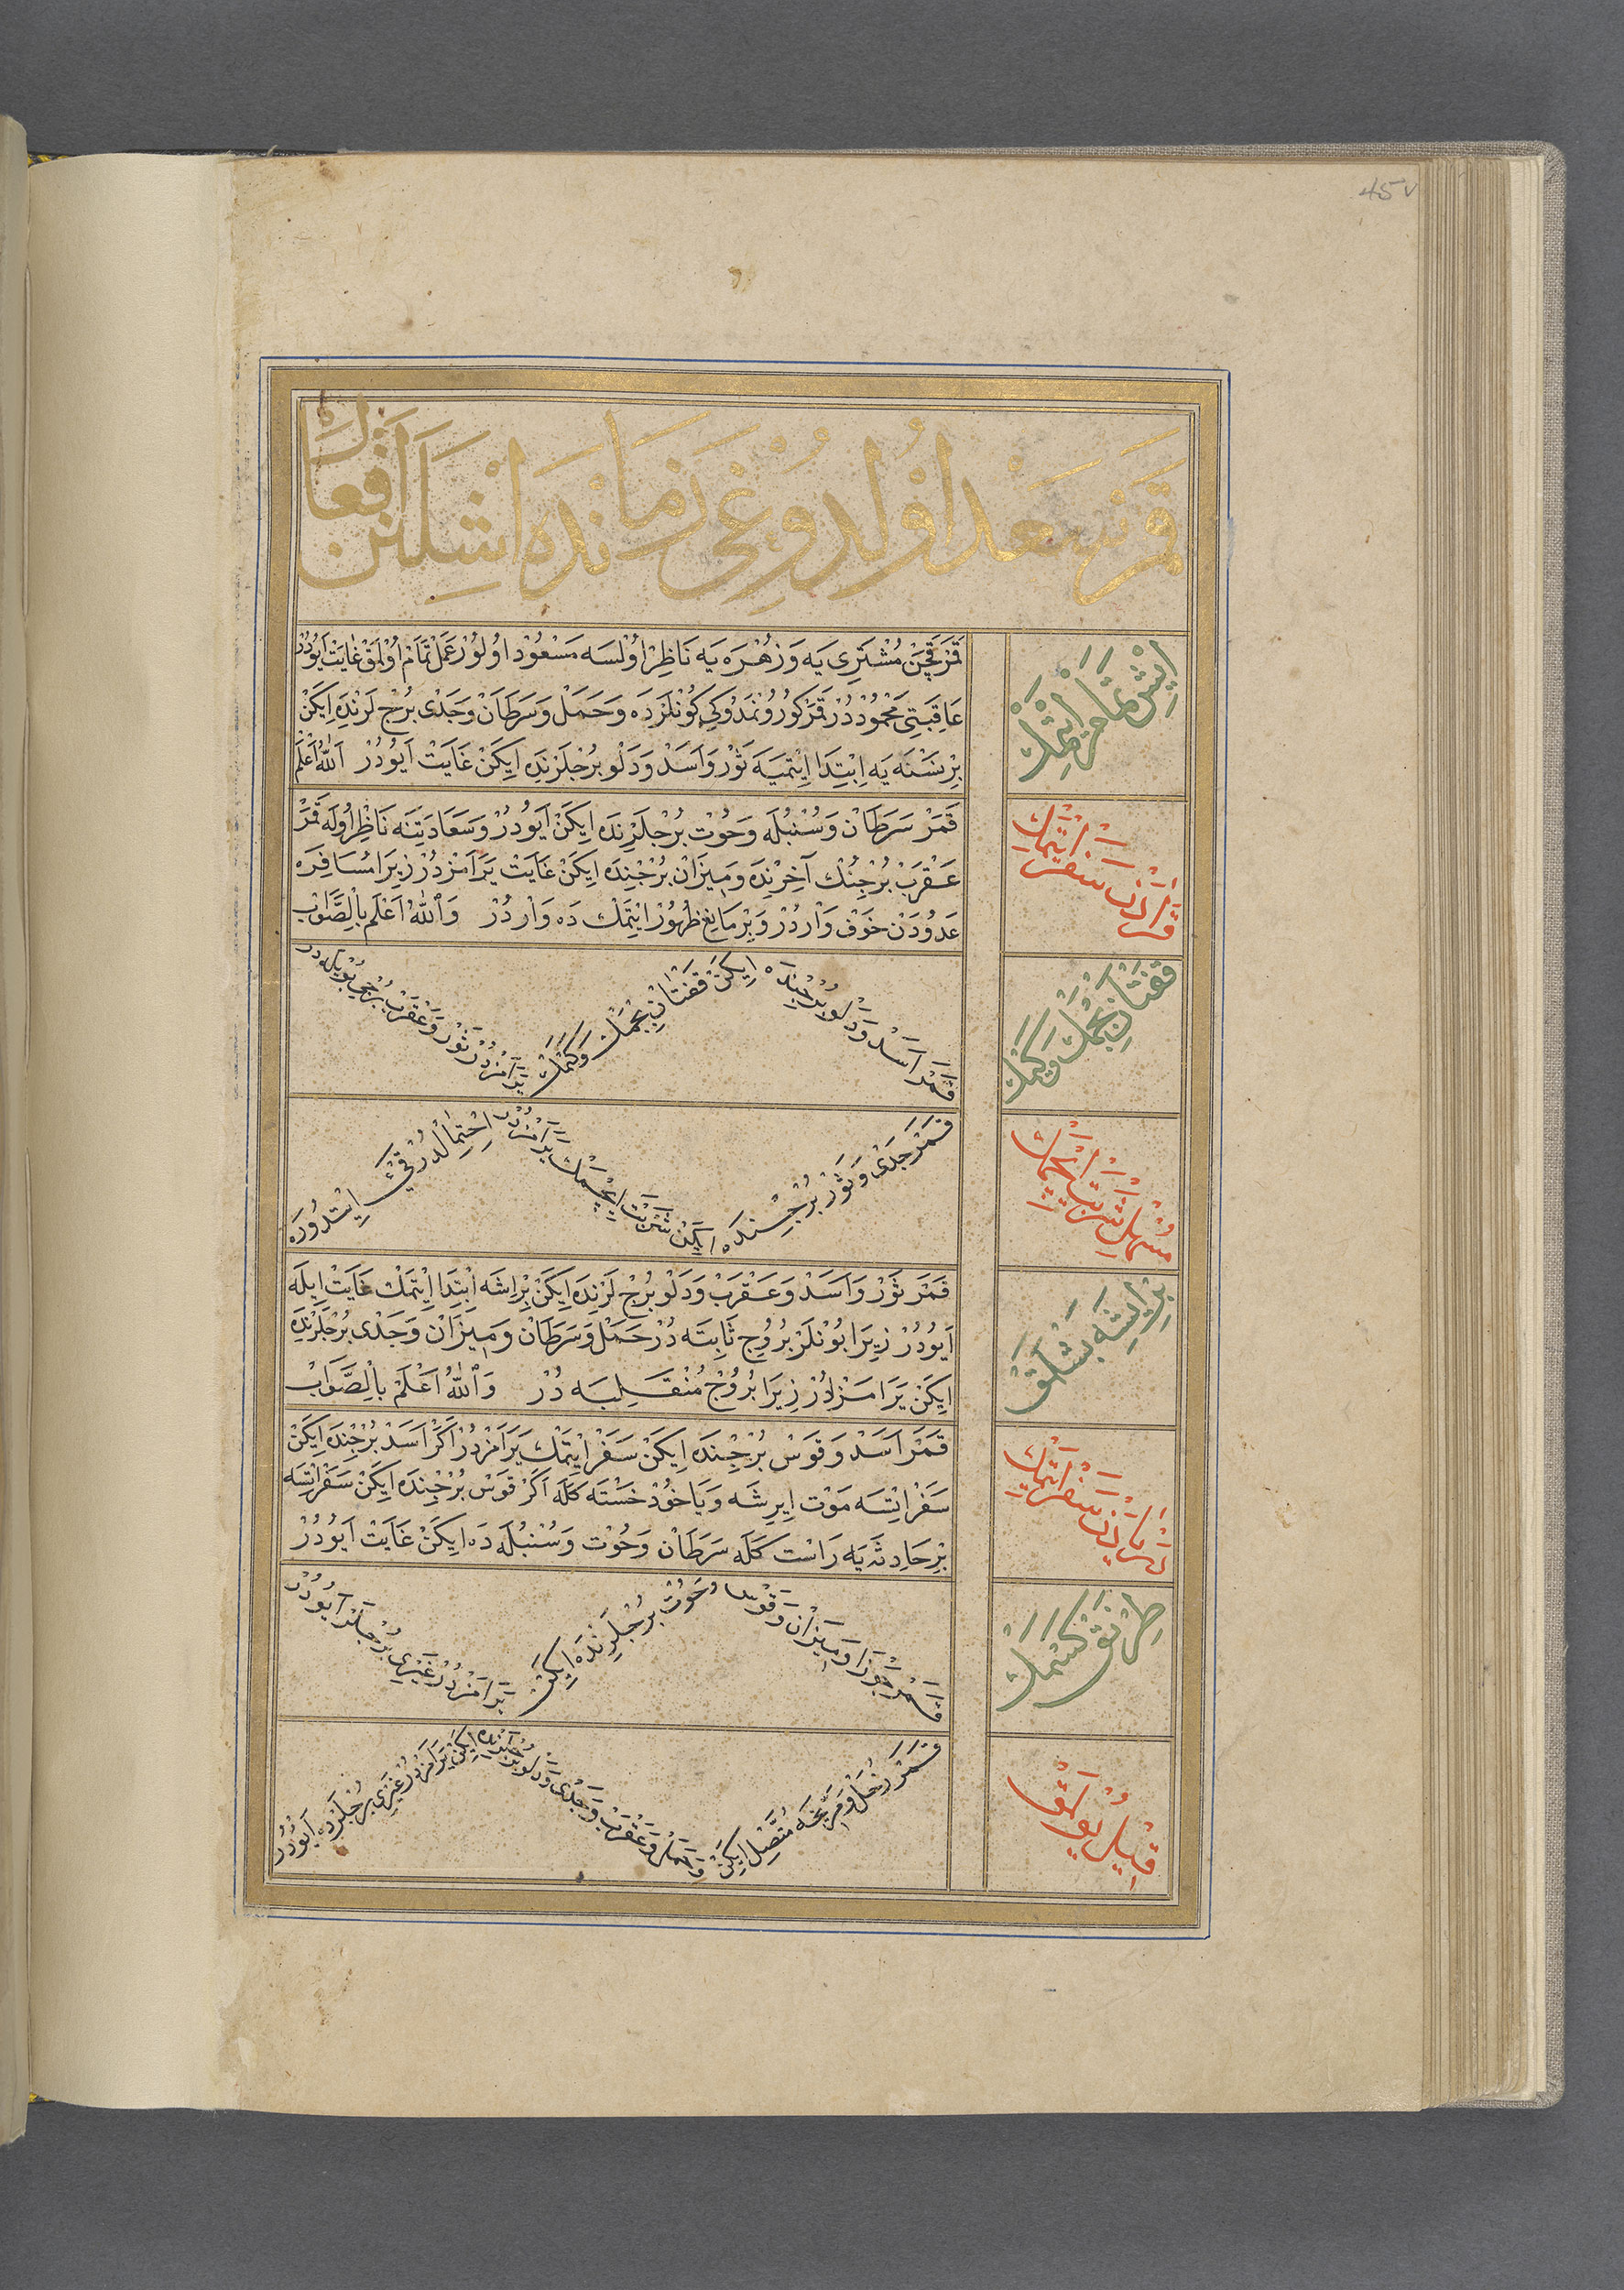 45v
قمر سعد اولدوغی زمانده اشلنن افعال
ایش تمام ایتمك
قَمَرْ قَچَنْ مُشْتَرِى يَه وَزُهْرَه يَه نَاظِرْ اُولْسَه مَسْعُودْ اُولُورْ عَمَلْ تَمَامْ اُولْمَقْ غَايَتْ اَيُودُرْ
عَاقِبَتِى مَحْمُودْدُرْ قَمَرْ كُورُونْمَدُوكِى كُونْلَرْدَه وَحَمَلْ وَسَرَطَانْ وَجَدْى بُرْجْلَرِنْدَه اِيكَنْ
بِرْ نَسْنَه يَه اِبْتِدَا اِيتْمَيَه ثَوْرْ وَاَسَدْ وَدَلْو بُرْجْلَرِنْدَه اِيكَنْ غَايَتْ اَيُودُرْ اَللهُ اَعْلَمْ
قرادن سفر ایتمك
قَمَرْ سَرَطَانْ وَسُنْبُلَه وَحُوتْ بُرْجْلَرِنْدَه اِيكَنْ اَيُودُرْ وَسَعَادَتِنَه نَاظِرْ اُولَه قَمَرْ
عَقْرَبْ بُرْجِنُكْ آخِرِنْدَه وَمِيزَانْ بُرْجِنْدَه اِيكَنْ غَايَتْ يَرَامَزْدُرْ زِيرَا مُسَافِرَه
عَدُودَنْ خَوْفْ وَارْدُرْ وَبِرْ مَانِعْ ظُهُورْ ايتْمَكْ دَه وَارْدُرْ وَاللهُ اَعْلَم بِالصَّوَابْ
قفتان بچمك وكیمك
قَمَرْ اَسَدْ وَدَلْو بُرْجِنْدَه اِيكَنْ قَفْتَانْ بِچْمَكْ وَكَيْمَكْ يَرَامَزْدُرْ ثَوْرْ وَعَقْرَبْ بُرْجِى بُويْلَه دُرْ
مسهل شربت ایچمك
قَمَرْ جَدْى وَثَوْرْ بُرْجِنْدَه اِيكَنْ شَرْبَتْ اِيچْمَكْ يَرَامَزْدُرْ اِحْتِمَالْدُرْ قَىْ اِيتْدُورَه
بر ایشه بشلمق
قَمَرْ ثَوْرْ وَاَسَدْ وَعَقْرَبْ وَدَلْو بُرْجْلَرِنْدَه اِيكَنْ بِرْ اِشَه اِبْتِدَا اِيتْمَكْ غَايَتْ اِيلَه
اَيُودُرْ زِيرَا بُونْلَرْ بُرُوجِ ثَابِتَه دُرْ حَمَلْ وَسَرَطَانْ وَمِيزَانْ وَجَدْى بُرْجْلَرِنْدَه
اِيكَنْ يَرَامَزْدُرْ زِيرَا بُرُوجْ مُنْقَلِبَه دُرْ وَاللهُ اَعْلَمْ بِالصَّوَابْ
دریادن سفر ایتمك
قَمَرْ اَسَدْ وَقَوَسْ بُرْجِنْدَه اِيكَنْ سَفَرْ ايتْمَكْ يَرَامَزْدُرْ اَكَرْ اَسَدْ بُرْجِنْدَه اِيكَنْ
سَفَرْ اِتْسَه مَوْت اِيرِشَه وَيَاخُودْ خَسْتَه كَلَه اَكَرْ قَوْسْ بُرْجِنْدَه اِيكَنْ سَفَرْ اِتْسَه
بِرْ حَادِثَه يَه رَاسْت كَلَه سَرَطَانْ وَحُوْت وَسُنْبُلَه دَه اِيكَنْ غَايَتْ اَيُودُرْ
طرنق كسمك
قَمَرْ جَوْزَا وَمِيزَانْ وَقَوْسْ وَحُوتْ بُرْجْلَرِنْدَه اِيكَنْ يَرَامَزْدُرْ غَيْرِى بُرْجْلَرْ اَيُودُرْ
قیل یولمق
قَمَرْ زُحَلْ وَمِرِّيخَه مُتَّصِلْ اِيكَنْ وَعَقْرَبْ وَجَدْى وَدَلْو بُرْجِنْدَه اِيكَنْ يَرَامَزْدُرْ غَيْرِى بُرْجْلَرْدَه اَيُودُرْ